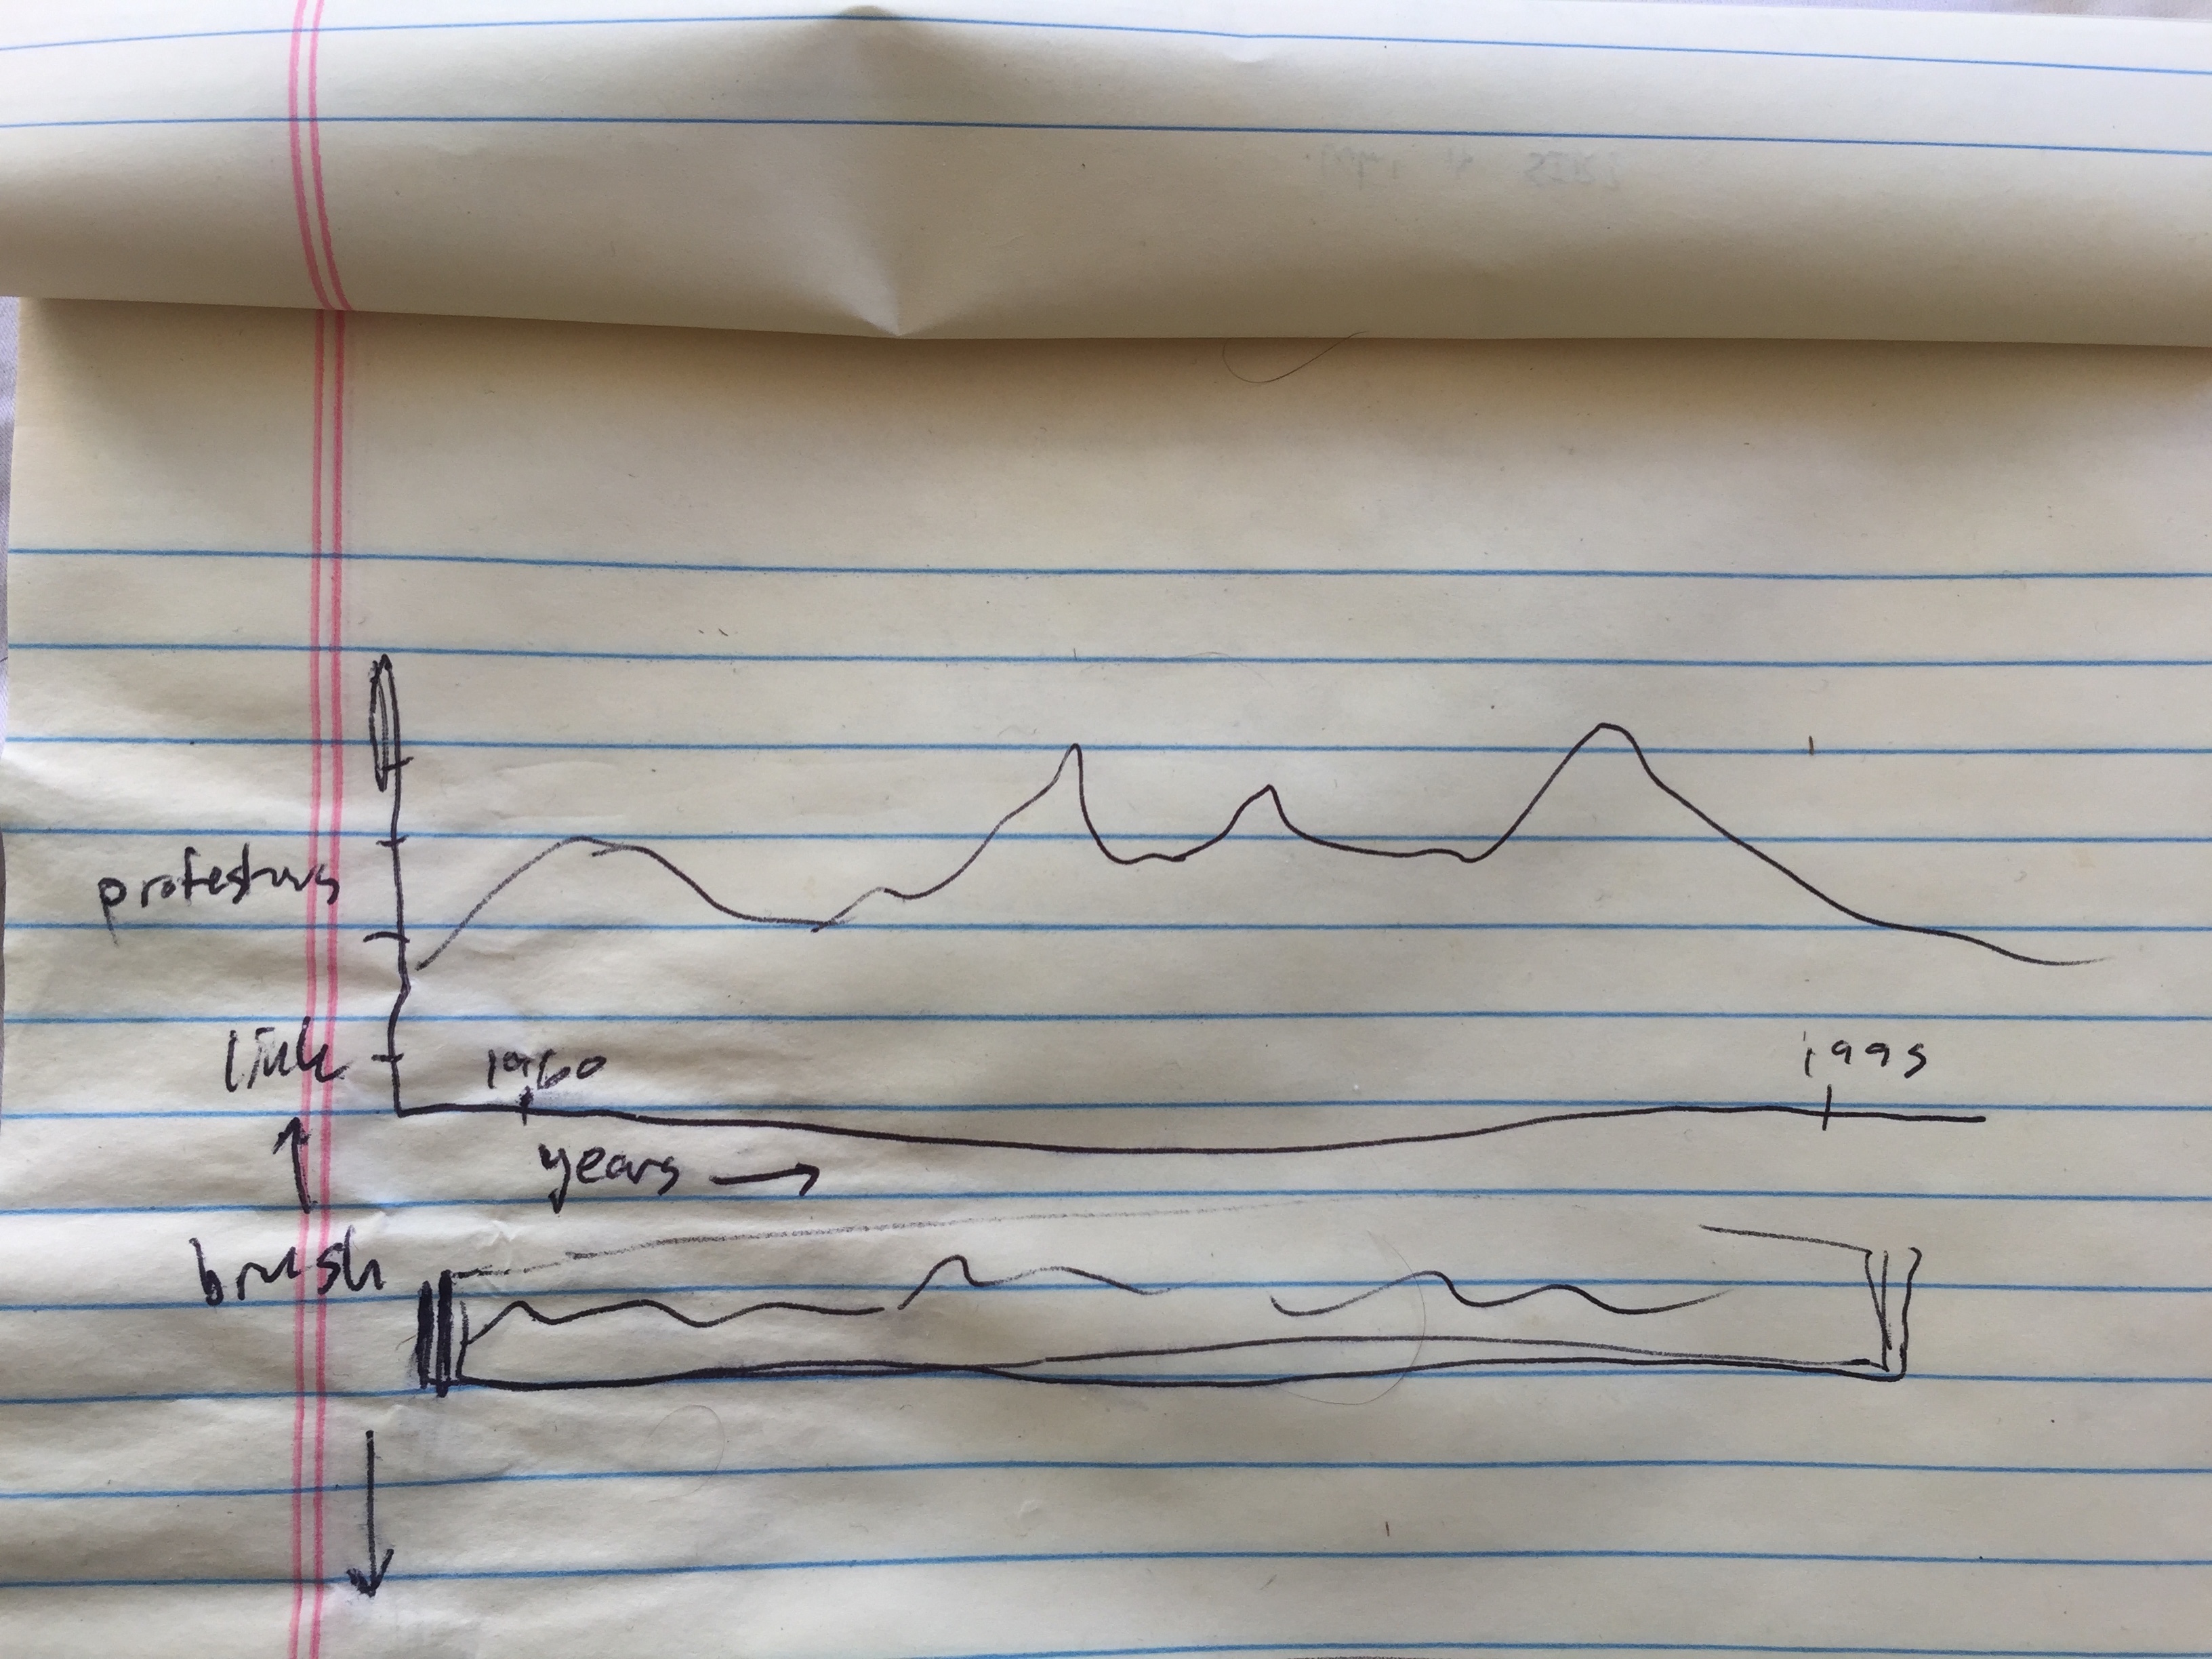 protestors
link
1960
1995
years →
brush